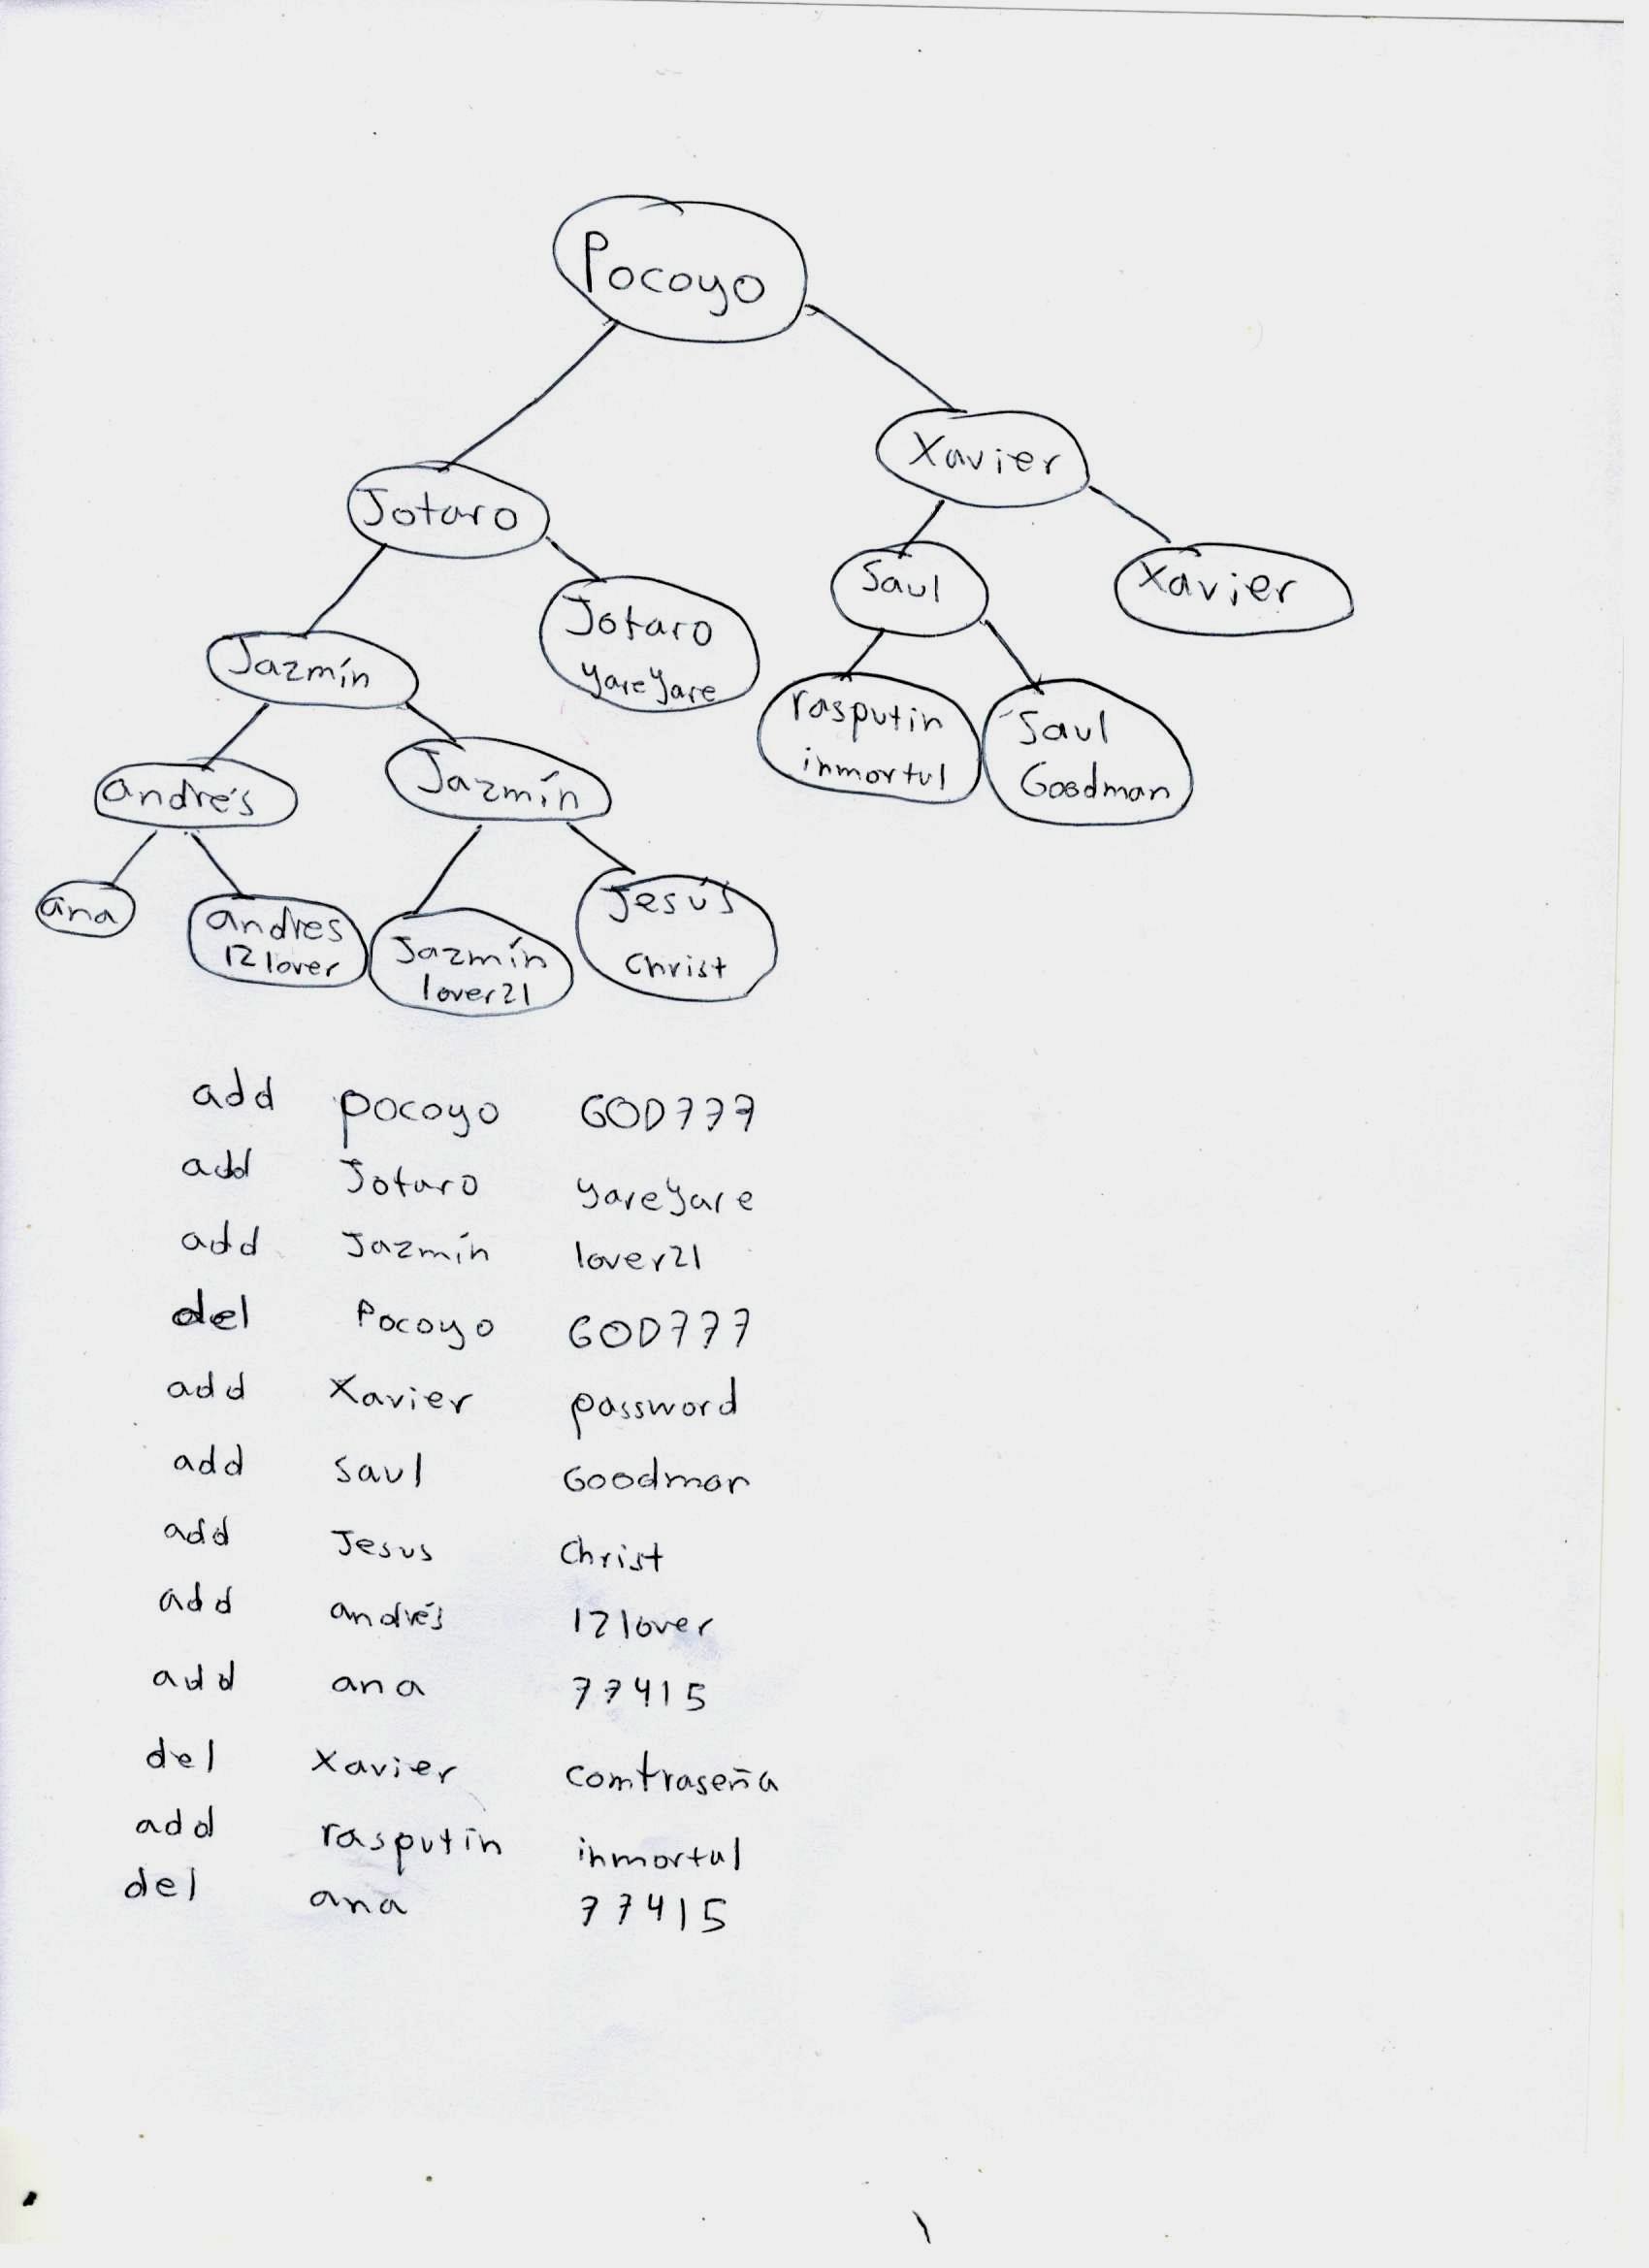 Pocoyo
Xavier
Jotaro
Saul
Xavier
Jotaro
yareyare
Jazmín
rasputin
inmortal
Saul
Goodman
andrés
Jazmín
ana
andres
12lover
Jazmín
lover21
Jesús
Christ
add pocoyo GOD777
add Jotaro yareyare
add Jazmín lover21
del Pocoyo GOD777
add Xavier password
add saul Goodman
add Jesus Christ
add andrés 12lover
add ana 77415
del Xavier comtraseña
add rasputin inmortal
del ana 77415